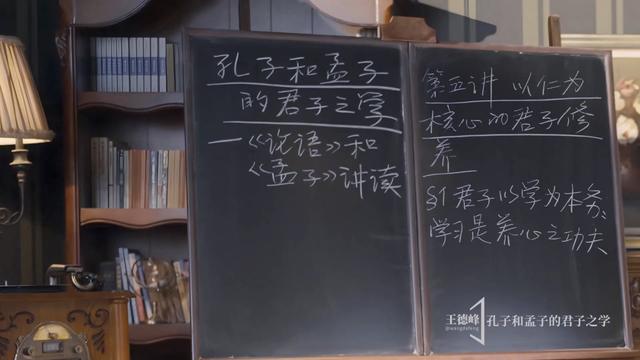 孔子和孟子
的君子之学
—《论语》和
《孟子》讲读
第五讲 以仁为
核心的君子修
养
§1 君子以学为本务:
学习是养心之功夫
王德峰
@wangdefeng
孔子和孟子的君子之学